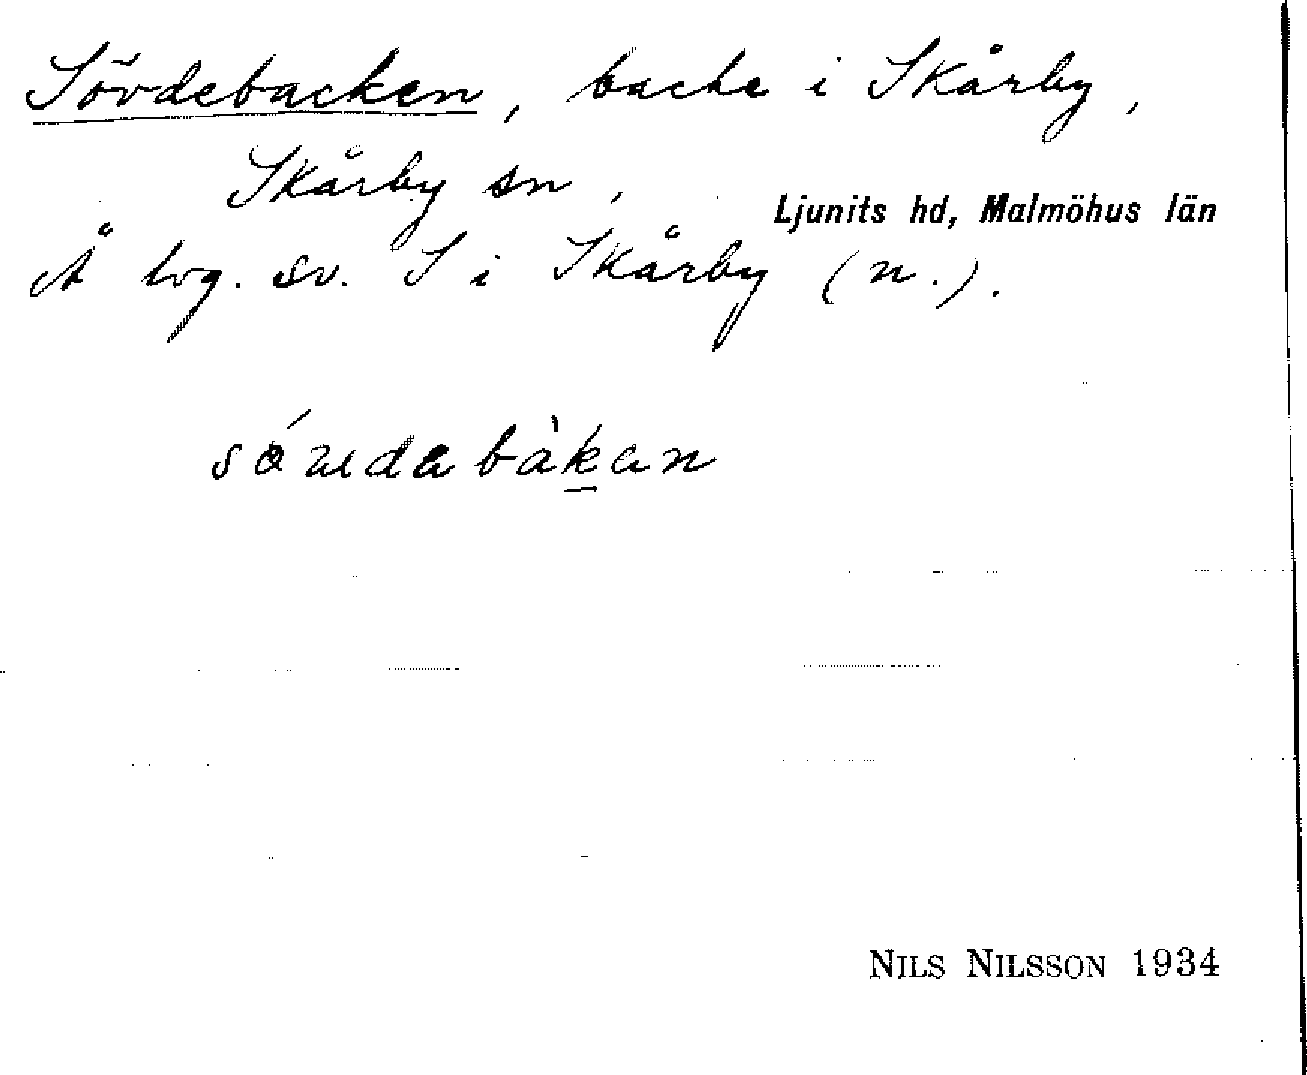 Sövdebacken, backe i Skårby,
Skårby sn,
Ljunits hd, Malmöhus län
Å lvg. sv. S i Skårby (n.).
NILS NILSSON 1934